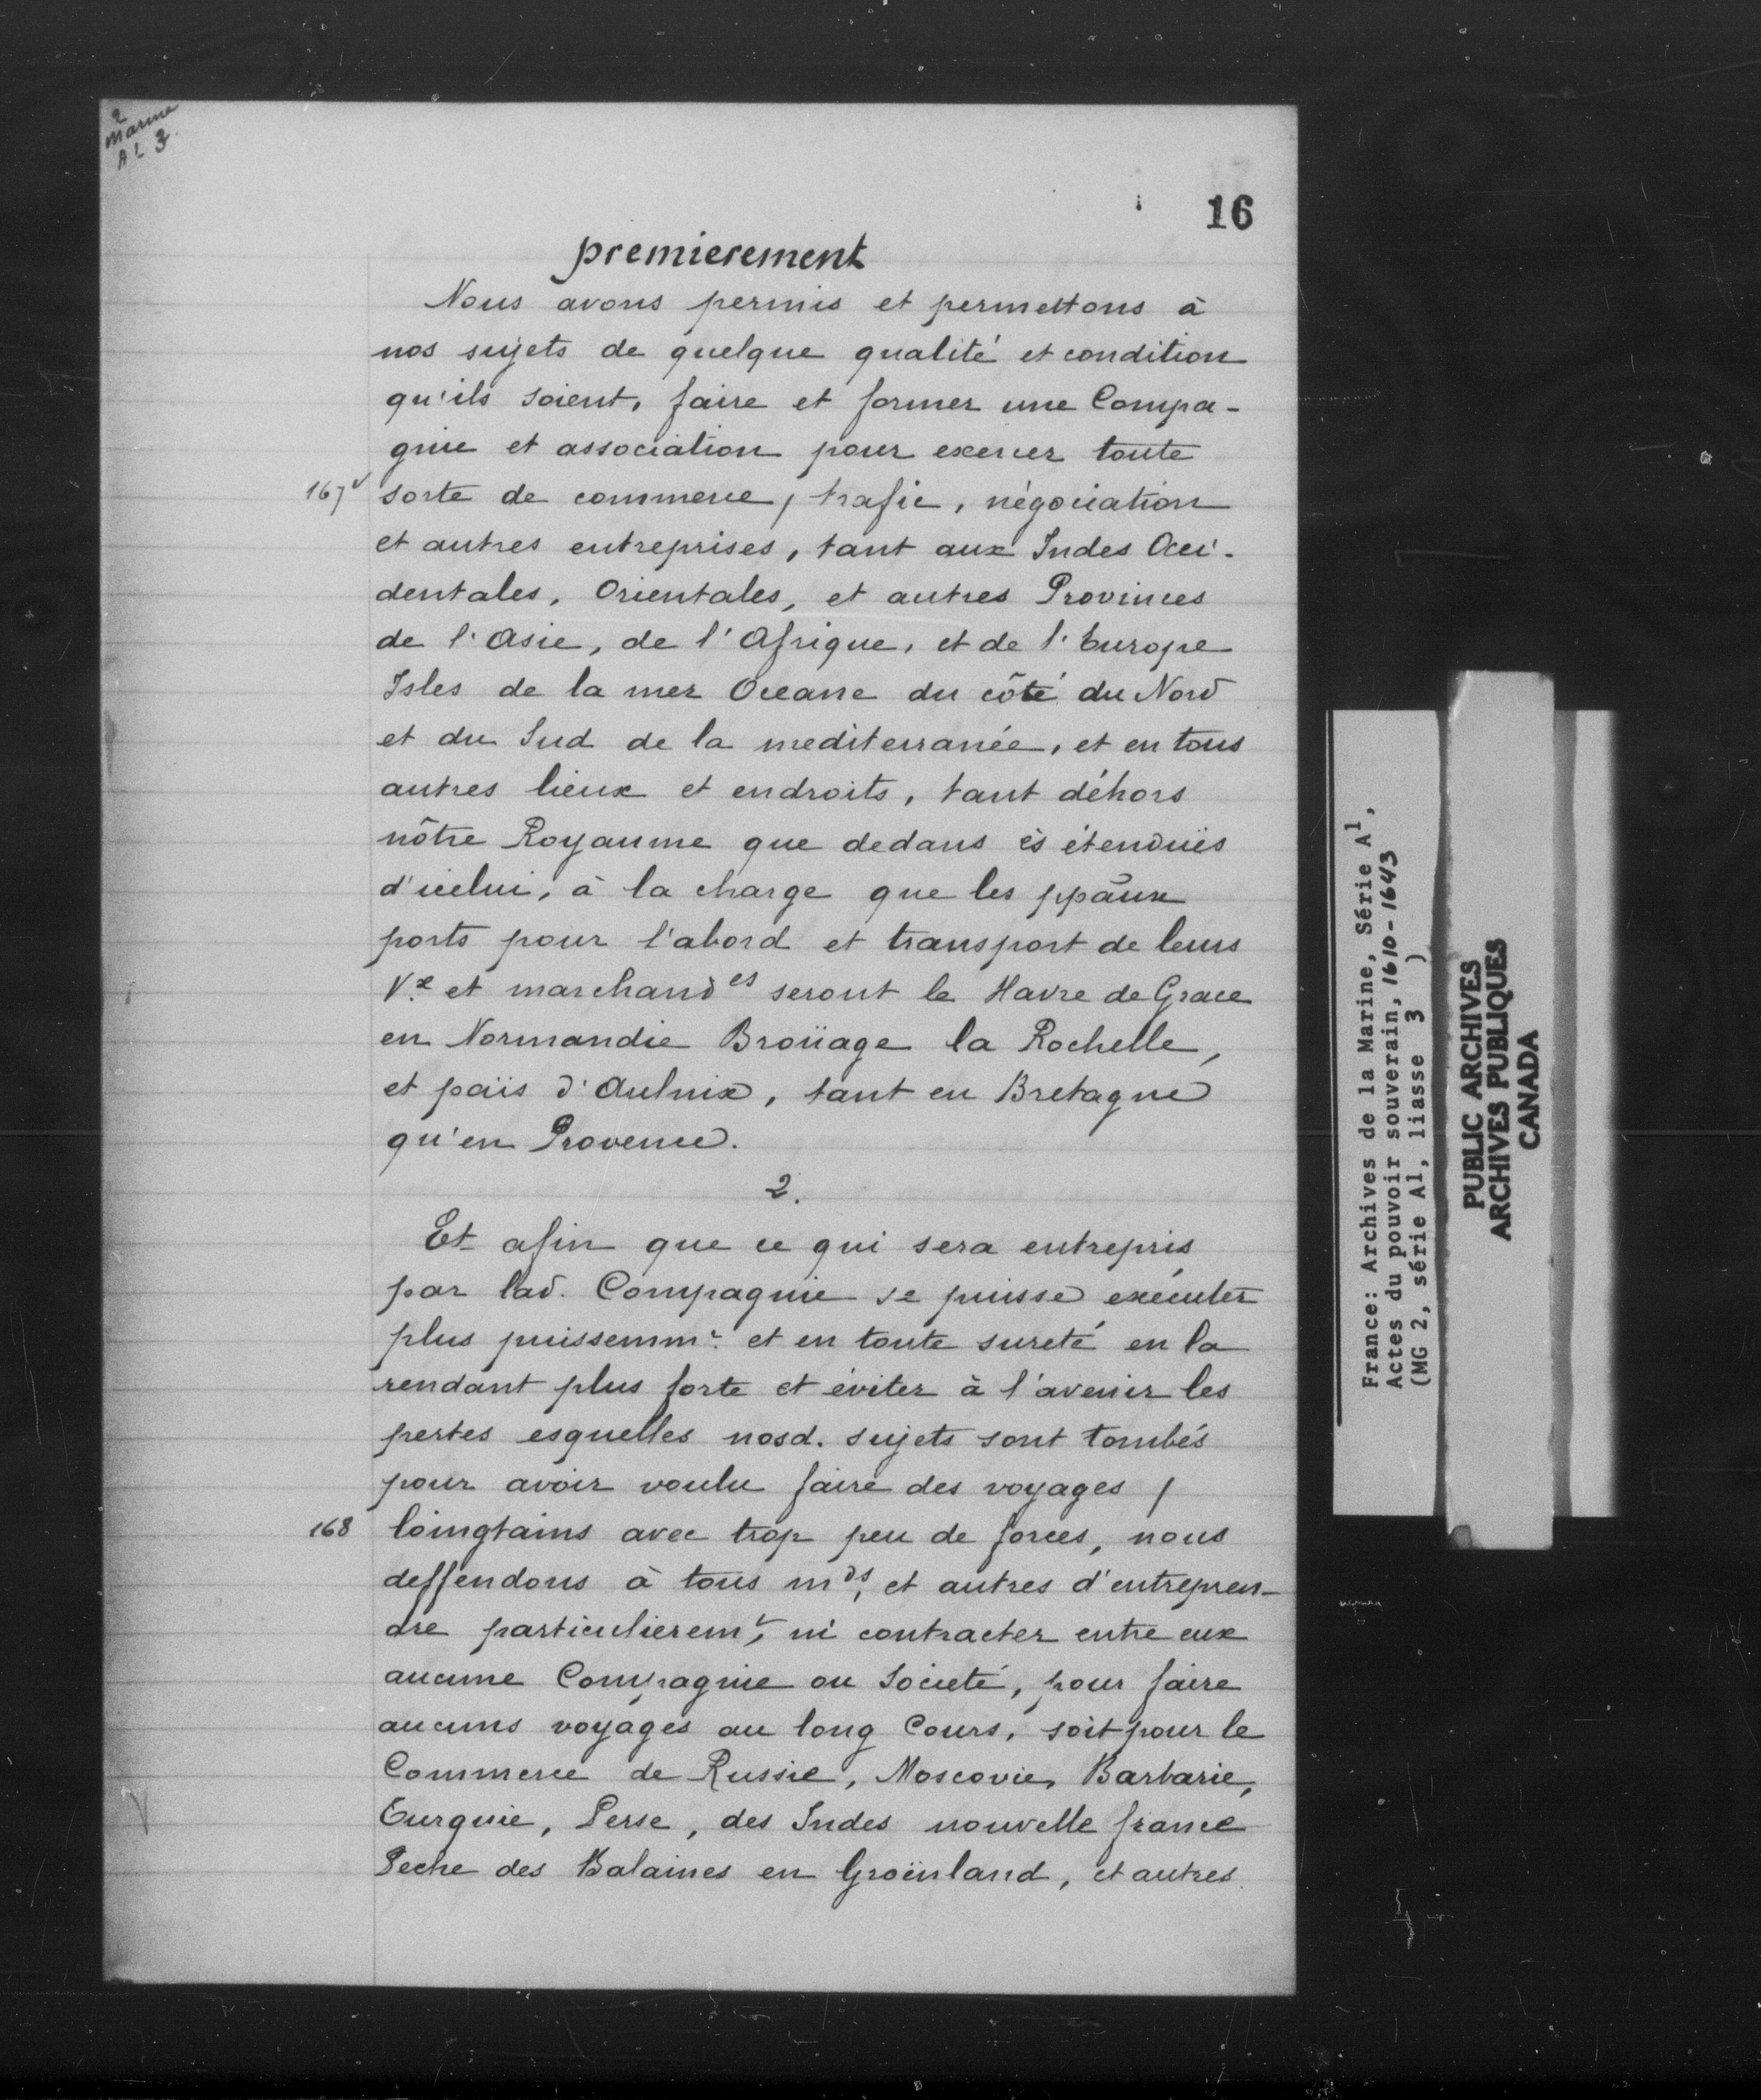 2
Marine
A1 3
16
premierement
Nous avons permis et permettons à
nos sujets de quelque qualité et condition
qu'ils soient, faire et former une Compa-
gnie et association pour exercer toute
167v sorte de commerce / trafic, négociation
et autres entreprises, tant aux Indes Occi-
dentales, Orientales, et autres Provinces
de l'Asie, de l'Afrique, et de l'Europe
Isles de la mer Oceane du côté du Nord
et du Sud de la mediterranée, et en tous
autres lieux et endroits, tant déhors
nôtre Royaume que dedans ès étenduës
d'icelui, à la charge que les ppāux
ports pour l'abord et transport de leurs
Vx et marchandes seront le Havre de Grace
en Normandie Broüage la Rochelle,
et païs d'Aulnix, tant en Bretagne
qu'en Provence.
2.
Et afin que ce qui sera entrepris
par lad. Compagnie se puisse exécuter
plus puissemmt. et en toute sureté en la
rendant plus forte et éviter à l'avenir les
pertes esquelles nosd. sujets sont tombés
pour avoir voulu faire des voyages /
168 loingtains avec trop peu de forces, nous
deffendons à tous mds, et autres d'entrepren-
dre particulieremt, ni contracter entre eux
aucune Compagnie ou Societé, pour faire
aucuns voyages au long Cours, soit pour le
Commerce de Russie, Moscovie, Barbarie,
Turquie, Perse, des Indes nouvelle france
Peche des Balaines en Groënland, et autres
France: Archives de la Marine, Série A1,
Actes du pouvoir souverain, 1610-1643
(MG 2, série A1, liasse 3 )
PUBLIC ARCHIVES
ARCHIVES PUBLIQUES
CANADA